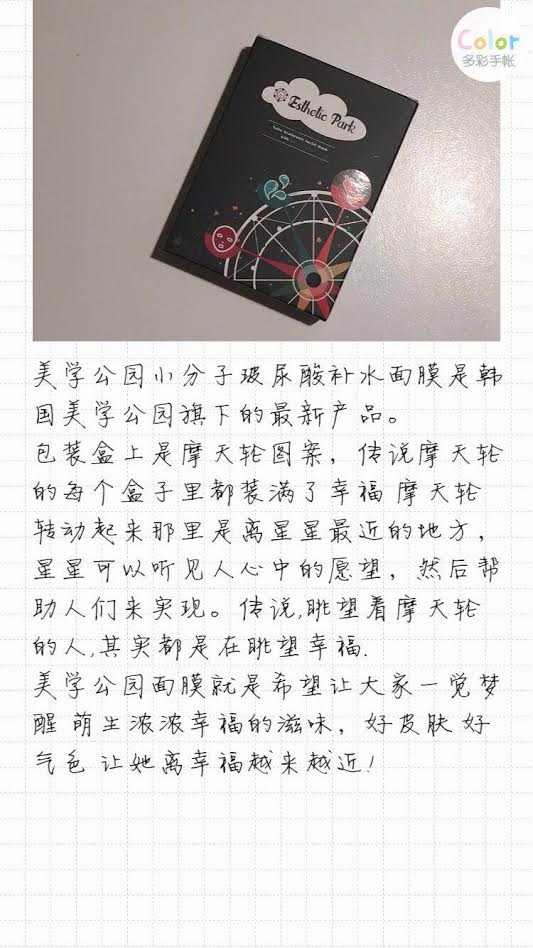 Color
多彩手帐
Esthetic Park
美学公园小分子玻尿酸补水面膜是韩
国美学公园旗下的最新产品。
包装盒上是摩天轮图案，传说摩天轮
的每个盒子里都装满了幸福 摩天轮
转动起来那里是离星星最近的地方，
星星可以听见人心中的愿望，然后帮
助人们来实现。传说,眺望着摩天轮
的人,其实都是在眺望幸福.
美学公园面膜就是希望让大家一觉梦
醒 萌生浓浓幸福的滋味，好皮肤 好
气色 让她离幸福越来越近!